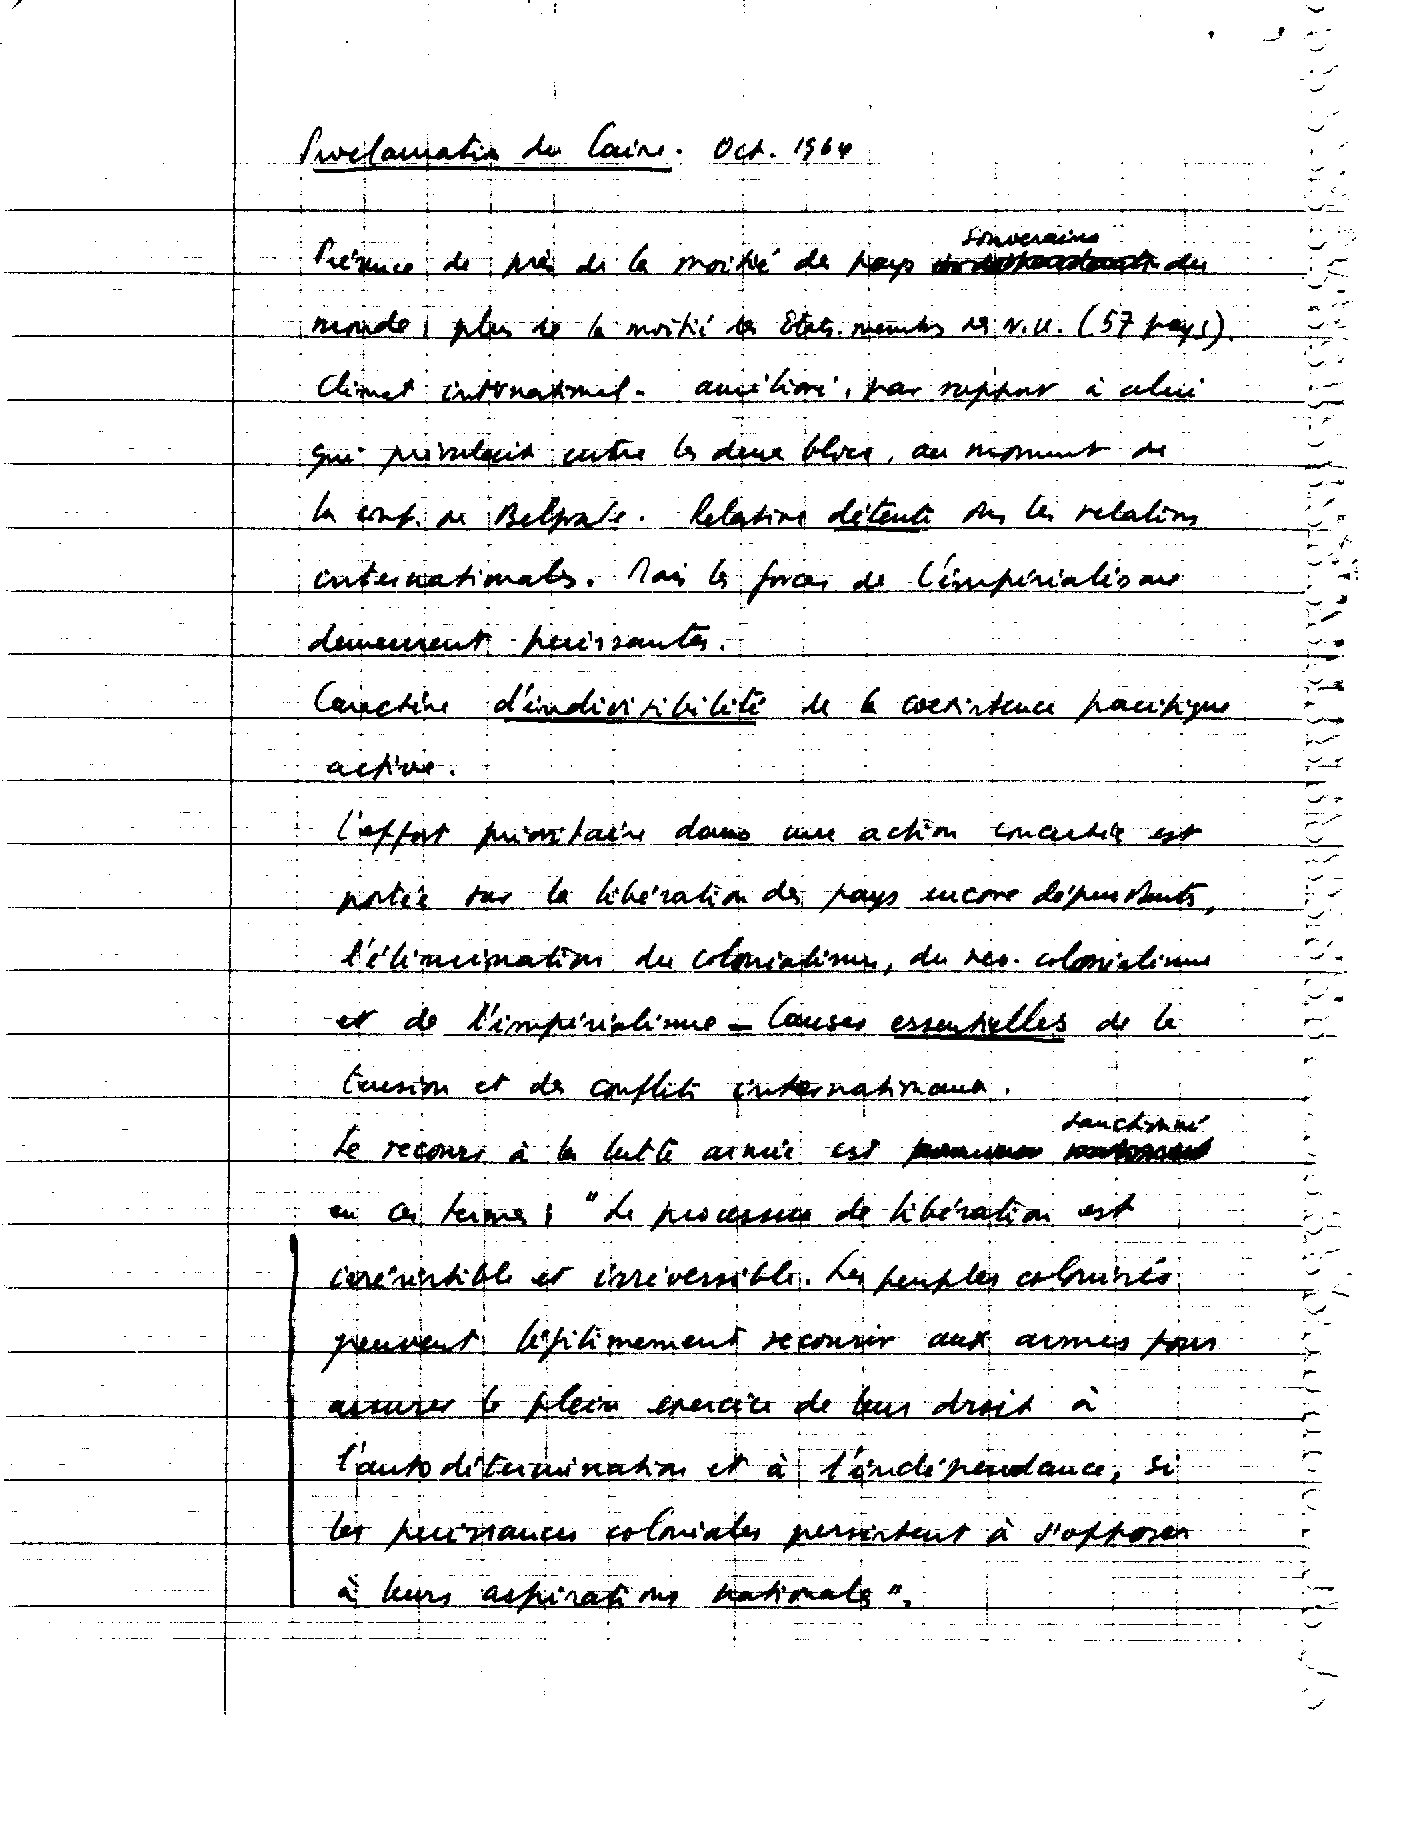 Proclamation du Caire. Oct. 1964
Présence de près de la moitié des pays souverains du
monde, plus de la moitié des Etats membres des N.U. (57 pays).
Climat international amélioré, par rapport à celui
qui prévalait entre les deux blocs, au moment de
la conf. de Belgrade. Relative détente ds les relations
internationales. Mais les forces de l'impérialisme
demeurent puissantes.
Caractère d'indivisibilité de la coexistence pacifique
active.
L'effort prioritaire dans une action concertée est
portée sur la libération des pays encore dépendants,
l'élimination du colonialisme, du néo-colonialisme
et de l'impérialisme – Causes essentielles de la
tension et des conflits internationaux.
Le recours à la lutte armée est sanctionné
en ces termes : "Le processus de libération est
irrésistible et irréversible. Les peuples colonisés
peuvent légitimement recourir aux armes pour
assurer le plein exercice de leur droit à
l'autodétermination et à l'indépendance, si
les puissances coloniales persistent à s'opposer
à leurs aspirations nationales".